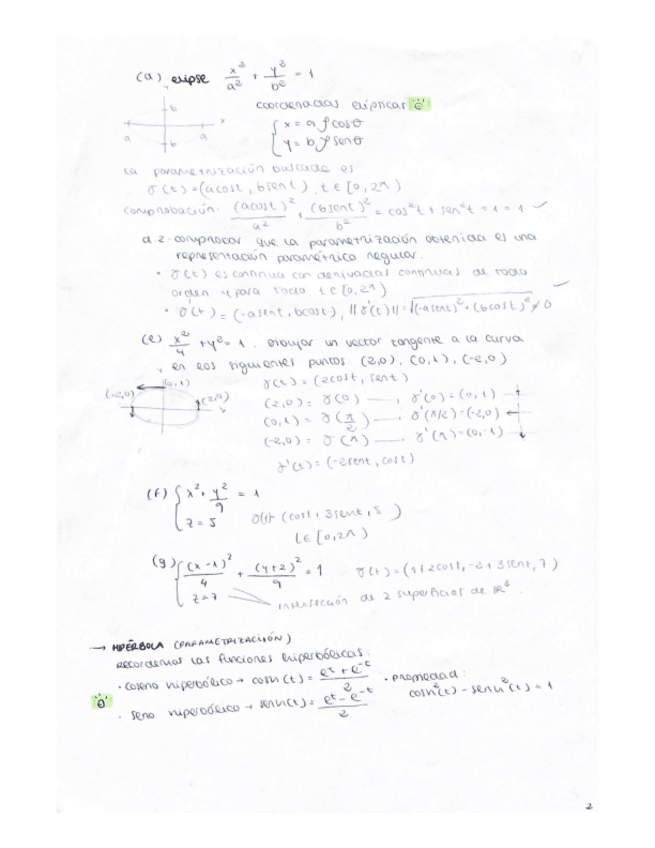 (a) elipse x²/a² + y²/b² = 1
coordenadas elípticas
b
x
{ x = a ρ cosθ
a a
{ y = b ρ senθ
b
La parametrización buscada es
γ(t) = (acost, bsent), t ∈ [0, 2π)
comprobación: (acost)²/a² + (bsent)²/b² = cos²t + sen²t = 1 = 1 ✓
d.2. comprobar que la parametrización obtenida es una
representación paramétrica regular.
• γ(t) es continua con derivadas continuas de todo
orden y para todo t ∈ [0, 2π) ✓
• γ'(t) = (-asent, bcost), ||γ'(t)|| = √((-asent)² + (bcost)²) ≠ 0
(e) x²/4 + y² = 1. Dibujar un vector tangente a la curva
en los siguientes puntos: (2,0), (0,1), (-2,0)
γ(t) = (2cost, sent)
(0,1)
(-2,0) (2,0)
(2,0) = γ(0) → γ'(0) = (0,1)
(0,1) = γ(π/2) → γ'(π/2) = (-2,0)
(-2,0) = γ(π) → γ'(π) = (0,-1)
γ'(t) = (-2sent, cost)
(f) { x² + y²/9 = 1
{ z = 5 γ(t) (cost, 3sent, 5)
t ∈ [0, 2π)
(g) { (x-1)²/4 + (y+2)²/9 = 1 γ(t) = (1+2cost, -2+3sent, 7)
{ z = 7 intersección de 2 superficies de
→ HIPÉRBOLA (PARAMETRIZACIÓN)
Recordemos las funciones hiperbólicas.
• coseno hiperbólico → cosh(t) = (eᵗ + e⁻ᵗ)/2 • propiedad:
cosh²(t) - senh²(t) = 1
• seno hiperbólico → senh(t) = (eᵗ - e⁻ᵗ)/2
2